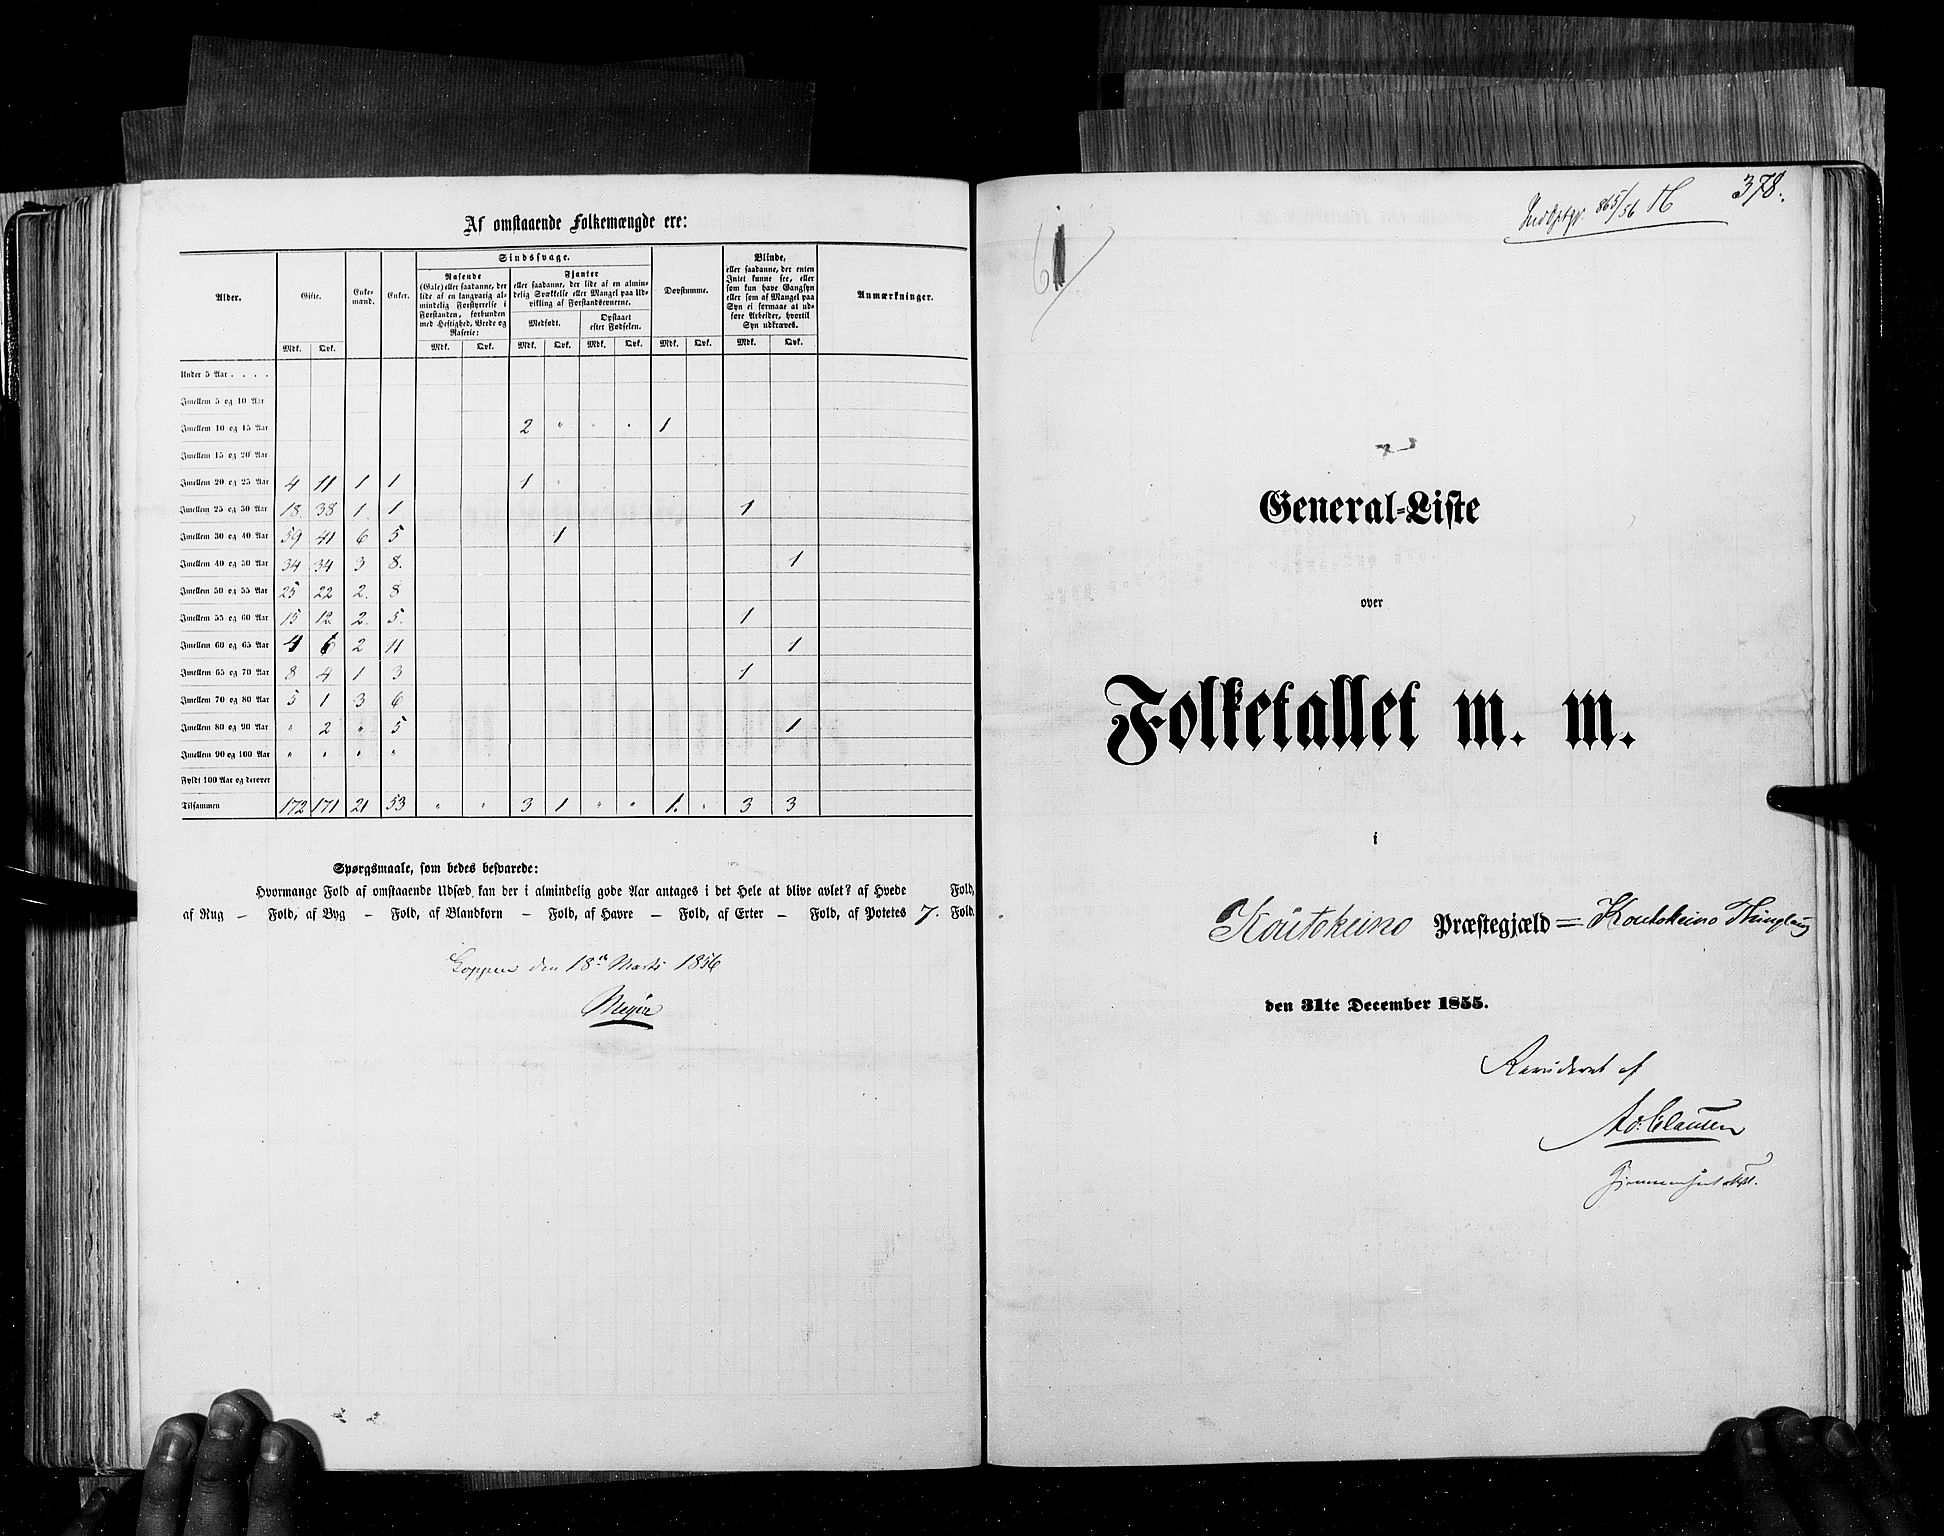 Af omstaaende Folkemængde ere:
Alder. Gifte. Enke-mænd. Enker. Sindssvage. Døvstumme. Blinde, Anmærkninger.
Rasende (Gale) eller saadanne, der lide af en langvarig almindelig Forstyrrelse i Forstanden, forbunden med Heftighed, Vrede og Raserie:
Fjanter eller saadanne, der lide af en almindelig Svækkelse eller Mangel paa Udvikling af Forstandsevnerne.
Medfødt. Opstaaet efter Fødselen.
eller saadanne, der enten Intet kunne see, eller som kun have Gangsyn eller som af Mangel paa Syn ei formaae at udføre Arbeider, hvortil Syn udkræves.
Mdk. Qvk. Mdk. Qvk. Mdk. Qvk. Mdk. Qvk. Mdk. Qvk. Mdk. Qvk.
Under 5 Aar . . . .
Imellem 5 og 10 Aar
Imellem 10 og 15 Aar 2 " " " 1
Imellem 15 og 20 Aar
Imellem 20 og 25 Aar 4 11 1 1 1
Imellem 25 og 30 Aar 18 38 1 1 1
Imellem 30 og 40 Aar 59 41 6 5 1
Imellem 40 og 50 Aar 34 34 3 8. 1
Imellem 50 og 55 Aar 25 22 2. 8
Imellem 55 og 60 Aar 15 12 2. 5. 1
Imellem 60 og 65 Aar 4 6 2 11 1
Imellem 65 og 70 Aar 8 4 1 3 1
Imellem 70 og 80 Aar 5 1 3 6
Imellem 80 og 90 Aar " 2 " 5 1
Imellem 90 og 100 Aar " " " "
Fyldt 100 Aar og derover
Tilsammen 172 171 21 53 " " 3 1 " " 1. " 3 3
Spørgsmaale, som bedes besvarede:
Hvormange Fold af omstaaende Udsæd kan der i almindelig gode Aar antages i det Hele at blive avlet? af Hvede Fold,
af Rug – Fold, af Byg – Fold, af Blandkorn – Fold, af Havre – Fold, af Erter – Fold, af Potetes 7. Fold.
Loppen den 18de Marts 1856
378.
865/56
61
General-Liste
over
Folketallet m. m.
i
Koutokeino Præstegjæld = Koutokeino Thinglaug
den 31te December 1855.
Revideret af
Ad. Clausen